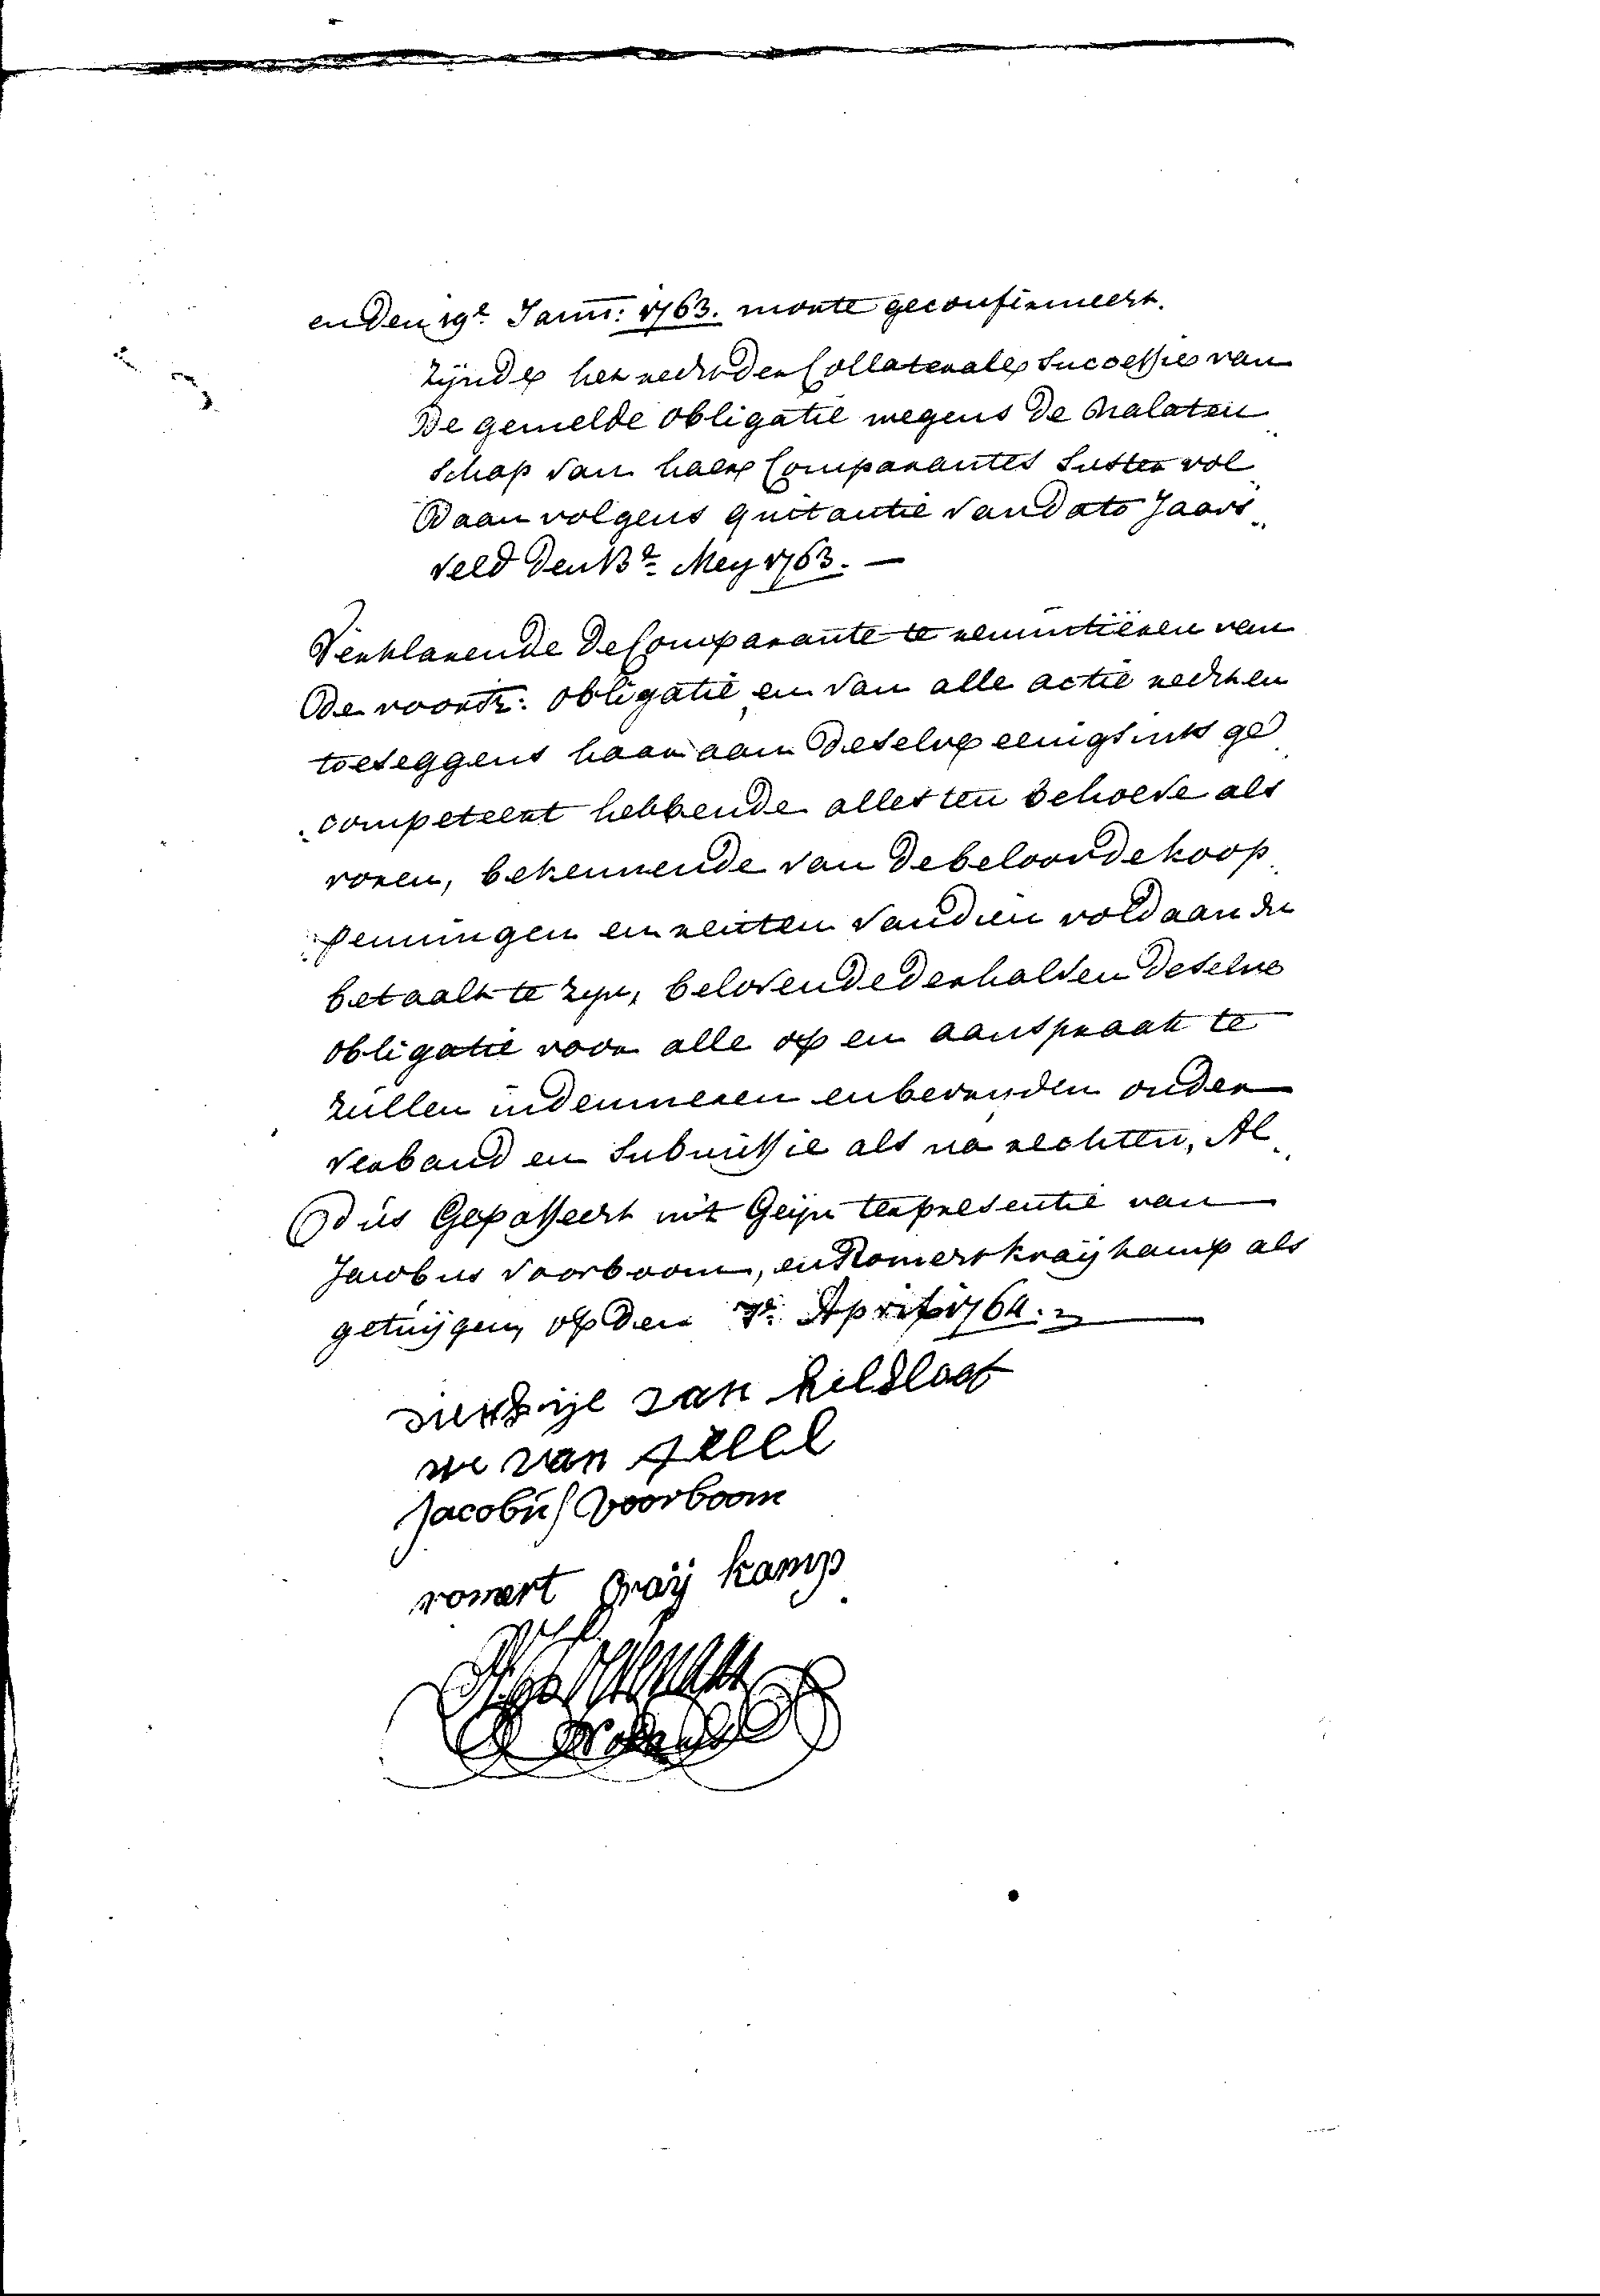 en den 19e. Janu: 1763. morte geconfirmeert.
Zijnde het recht der Collaterale Successie van
De gemelde obligatie wegens De Nalaten
Schap van haere Comparantes Suster vol
Daan volgens quitantie van dato Jaars
veld Den 13e. Mey 1763. —
Verklarende De Comparante te renuntiëren van
De voorsz: obligatie en van alle actie recht en
toeseggens haar aan Deselve eenigsints ge
competeert hebbende alles ten behoeve als
voren, bekennende van De beloovde koop
penningen en renten van dien voldaan en
betaalt te zijn, belovende derhalven Deselve
obligatie voor alle op en aanspraak te
zullen indemneren en bevrijden onder
verband en Submissie als na rechten, Al
Dus Gepasseert uit Geijn ter presentie van
Jacobus Voorboom, en Romert kraijkamp als
getuijgen, op den 7e. April 1764.
van hildlaet
we van
Jacobus Voorboom
romert graij kamp